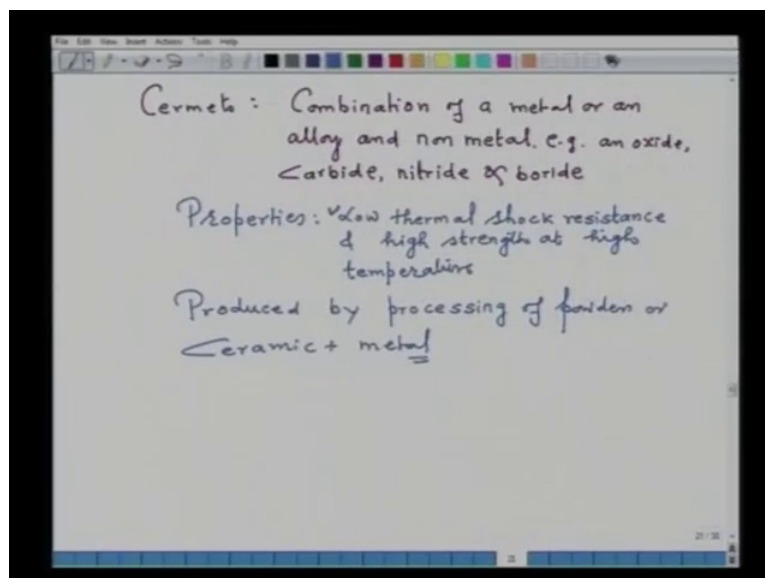 File Edit View Insert Actions Tools Help
Cermets : Combination of a metal or an
alloy and non metal. e.g. an oxide,
Carbide, nitride & boride
Properties : Low thermal shock resistance
& high strength at high
temperature
Produced by processing of powder or
Ceramic + metal
21 / 30